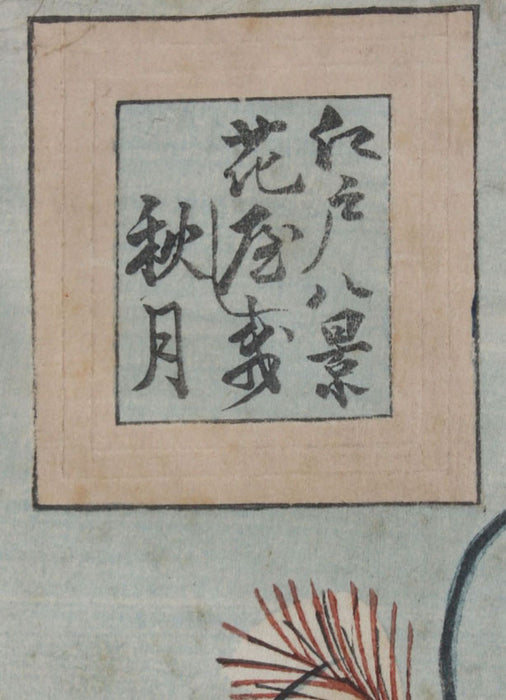 江戸八景
花屋敷
秋月